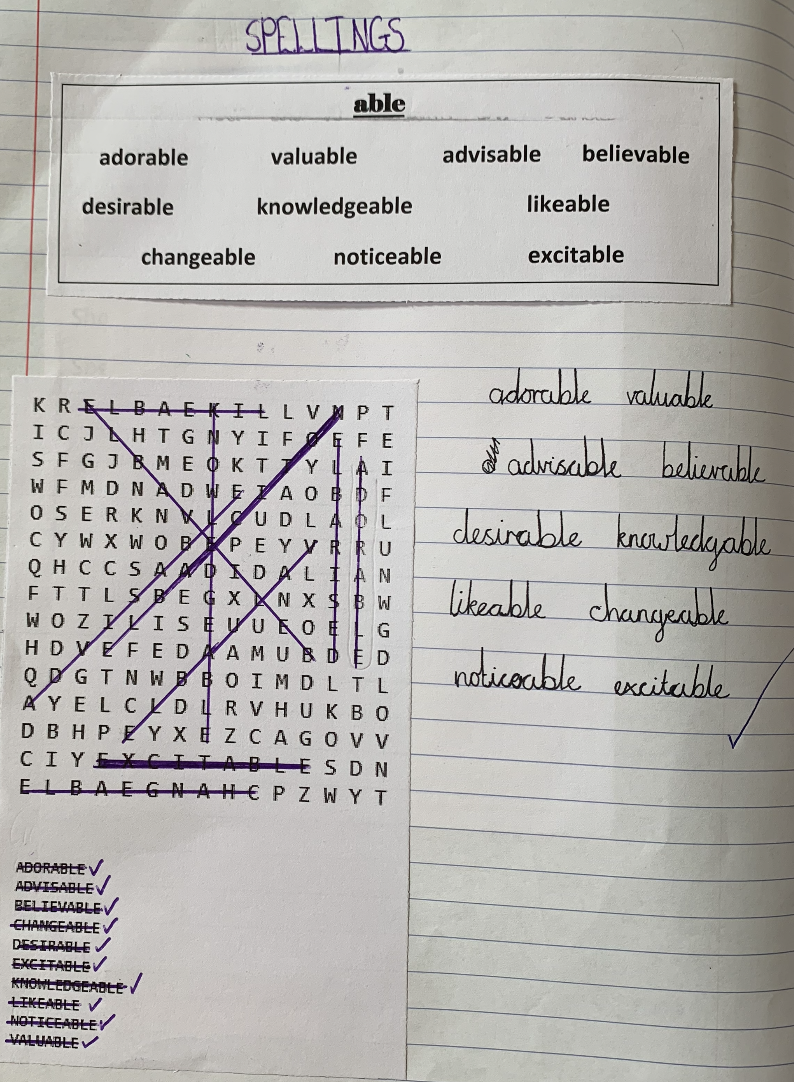 SPELLINGS
able
adorable valuable advisable believable
desirable knowledgeable likeable
changeable noticeable excitable
K R E L B A E K I L L V N P T
I C J L H T G N Y I F O E F E
S F G J B M E O K T T Y L A I
W F M D N A D W E I A O B D F
O S E R K N V L C U D L A O L
C Y W X W O B E P E Y V R R U
Q H C C S A A D I D A L I A N
F T T L S B E G X L N X S B W
W O Z I L I S E U U E O E L G
H D V E F E D A A M U B D E D
Q D G T N W B B O I M D L T L
A Y E L C L D L R V H U K B O
D B H P E Y X E Z C A G O V V
C I Y E X C I T A B L E S D N
E L B A E G N A H C P Z W Y T
ADORABLE
ADVISABLE
BELIEVABLE
CHANGEABLE
DESIRABLE
EXCITABLE
KNOWLEDGEABLE
LIKEABLE
NOTICEABLE
VALUABLE
adorable valuable
advisable believable
desirable knowledgable
likeable changeable
noticeable excitable